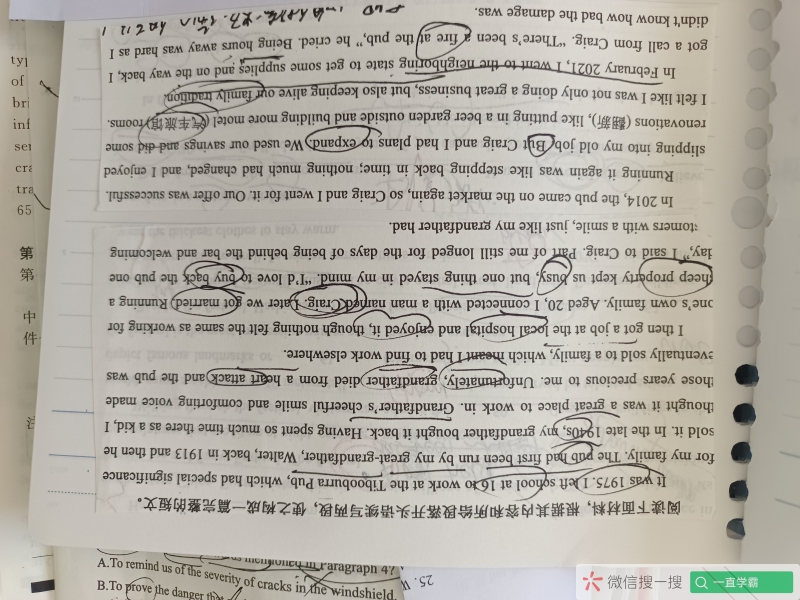 阅读下面材料，根据其内容和所给段落开头语续写两段，使之构成一篇完整的短文。
It was 1975. I left school at 16 to work at the Tibooburra Pub, which had special significance
for my family. The pub had first been run by my great-grandfather, Walter, back in 1913 and then he
sold it. In the late 1940s, my grandfather bought it back. Having spent so much time there as a kid, I
thought it was a great place to work in. Grandfather's cheerful smile and comforting voice made
those years precious to me. Unfortunately, grandfather died from a heart attack and the pub was
eventually sold to a family, which meant I had to find work elsewhere.
I then got a job at the local hospital and enjoyed it, though nothing felt the same as working for
one's own family. Aged 20, I connected with a man named Craig. Later we got married. Running a
heep property kept us busy, but one thing stayed in my mind. "I'd love to buy back the pub one
day," I said to Craig. Part of me still longed for the days of being behind the bar and welcoming
tomers with a smile, just like my grandfather had.
In 2014, the pub came on the market again, so Craig and I went for it. Our offer was successful.
Running it again was like stepping back in time; nothing much had changed, and I enjoyed
slipping into my old job. But Craig and I had plans to expand. We used our savings and did some
renovations (翻新), like putting in a beer garden outside and building more motel (汽车旅馆) rooms.
I felt like I was not only doing a great business, but also keeping alive our family tradition.
In February 2021, I went to the neighboring state to get some supplies and on the way back, I
got a call from Craig. "There's been a fire at the pub," he cried. Being hours away was hard as I
didn't know how bad the damage was.
typ
of
bri
inf
sen
cra
tra
65
第
第
中
件
注
mentioned in Paragraph 4?
A.To remind us of the severity of cracks in the windshield.
B.To prove the danger that
25.
微信搜一搜
一直学霸